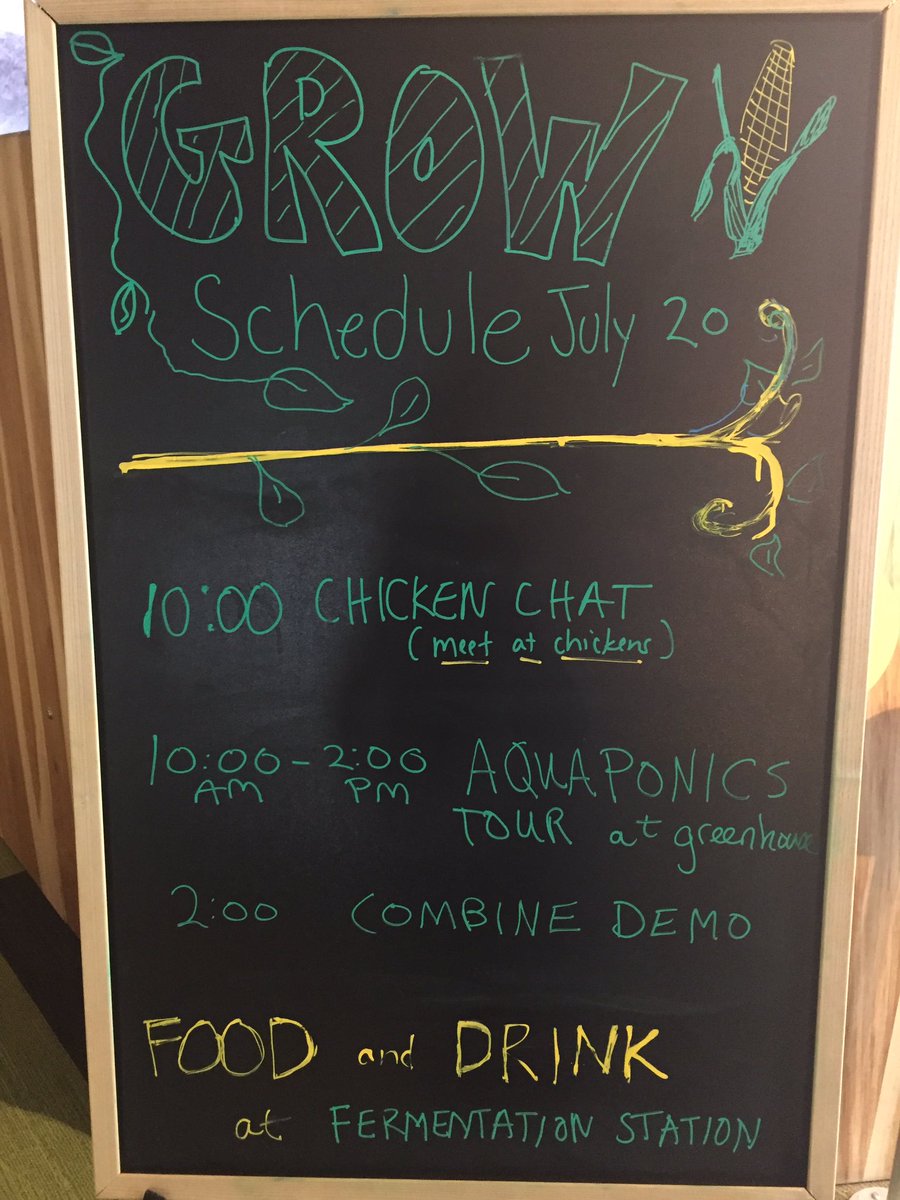 GROW
Schedule July 20
10:00 CHICKEN CHAT
(meet at chickens)
10:00 - 2:00 AQUAPONICS
AM PM TOUR at greenhouse
2:00 COMBINE DEMO
FOOD and DRINK
at FERMENTATION STATION